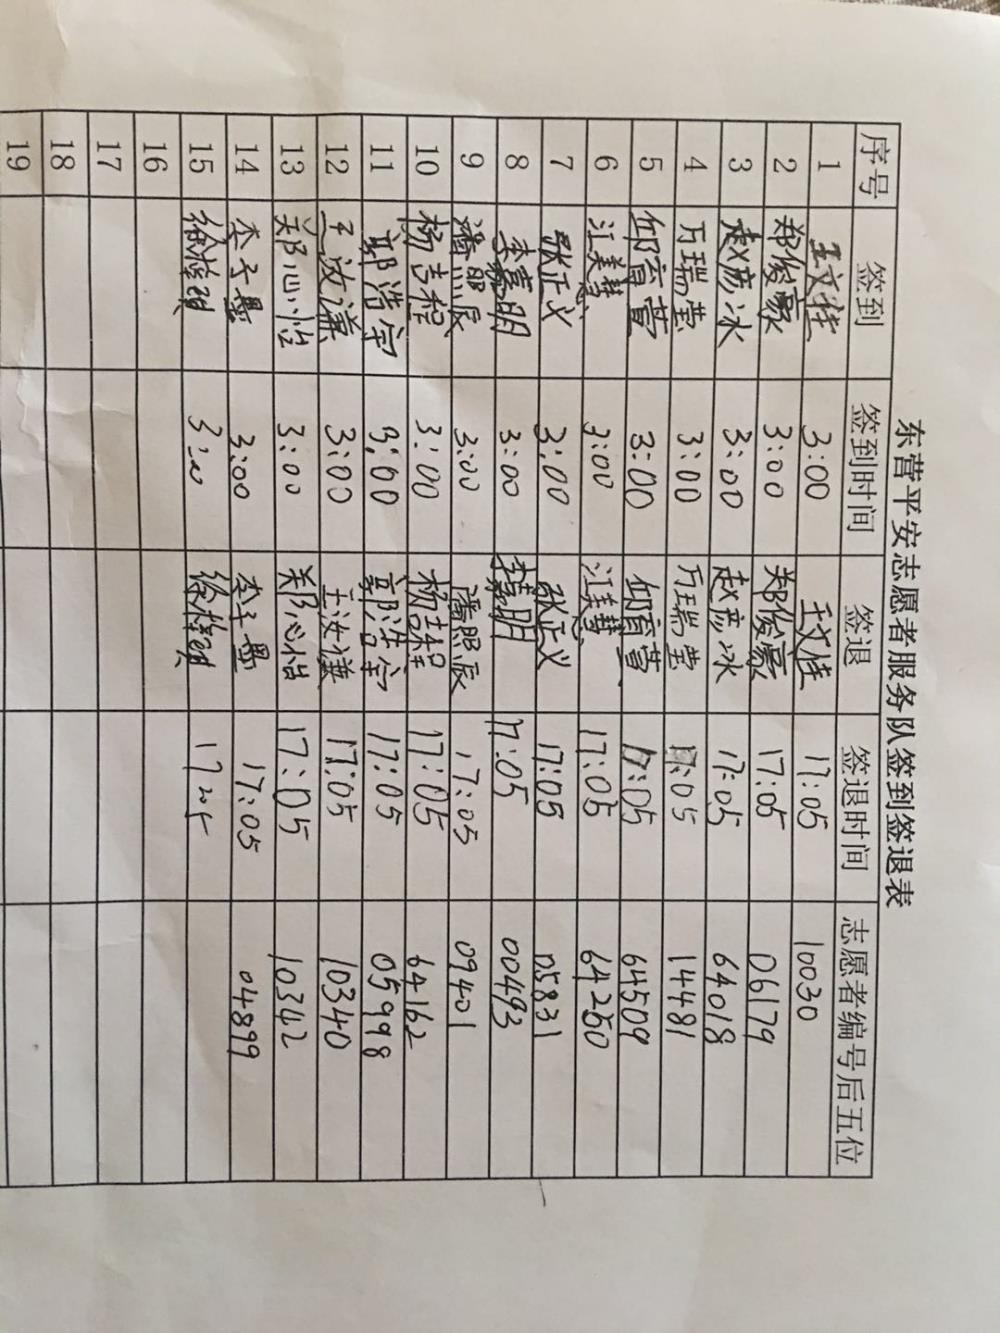 东营平安志愿者服务队签到签退表
序号 签到 签到时间 签退 签退时间 志愿者编号后五位
1 王文佳 3:00 王文佳 17:05 10030
2 郑俊豪 3:00 郑俊豪 17:05 06179
3 赵彦冰 3:00 赵彦冰 17:05 64018
4 万瑞莹 3:00 万瑞莹 17:05 14481
5 邱育萱 3:00 邱育萱 17:05 64509
6 江美慧 3:00 江美慧 17:05 64250
7 张正义 3:00 张正义 17:05 05831
8 李嘉明 3:00 李嘉明 17:05 00493
9 潘熙辰 3:00 潘熙辰 17:05 09401
10 杨吉程 3:00 杨吉程 17:05 64162
11 郭浩宇 3:00 郭浩宇 17:05 05998
12 王汝谦 3:00 王汝谦 17:05 10340
13 郑心怡 3:00 郑心怡 17:05 10342
14 李子墨 3:00 李子墨 17:05 04899
15 3:00 17:05
16
17
18
19